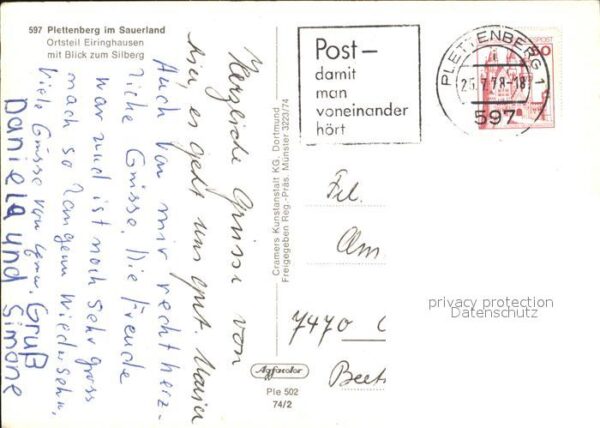 597 Plettenberg im Sauerland
Ortsteil Eiringhausen
mit Blick zum Silberg
Herzliche Grüsse von
hier, es geht uns gut. Maria
Auch von mir recht herz-
liche Grüsse. Die Freude
war und ist noch sehr gross
nach so langem Wiedersehn,
Viele Grüsse von
Gruß
Daniela und Simone
Cramers Kunstanstalt KG, Dortmund
Freigegeben Reg.-Präs. Münster 3223/74
Post –
damit
man
voneinander
hört
PLETTENBERG 1
25.7.78-18
597
POST
50
Frl.
Am
7470
Beet
privacy protection
Datenschutz
Ple 502
74/2